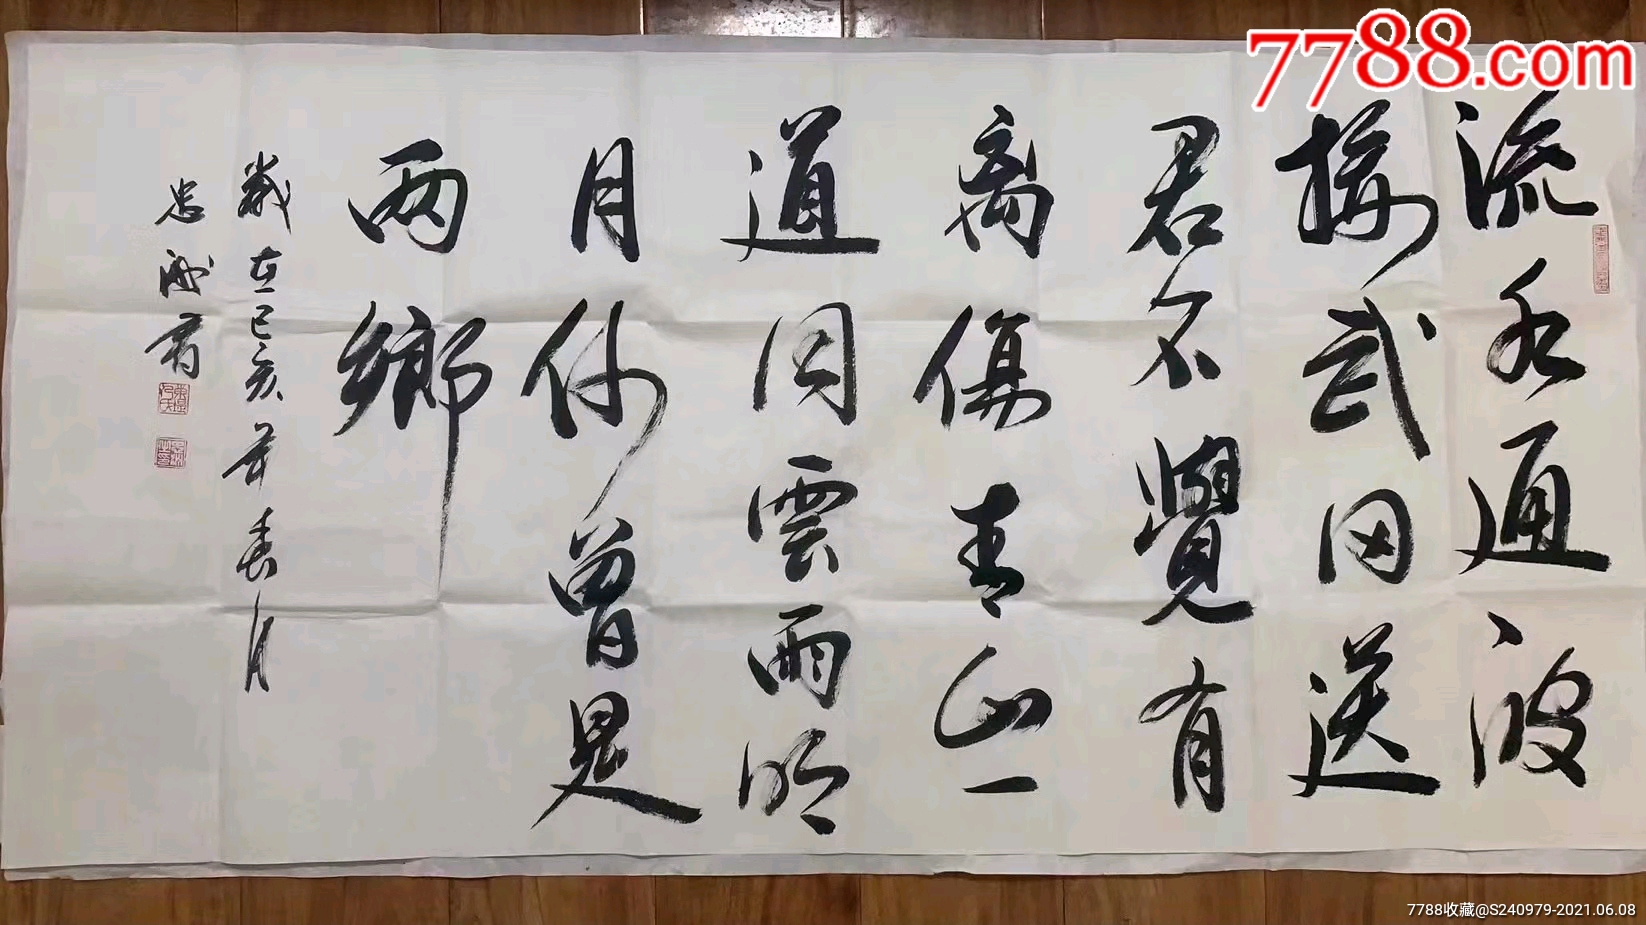 7788.com
流水通波
接武冈送
君不覺有
离傷青山一
道同雲雨明
月何曾是
两鄉
歲在己亥年春月
忠
7788收藏@S240979-2021.06.08